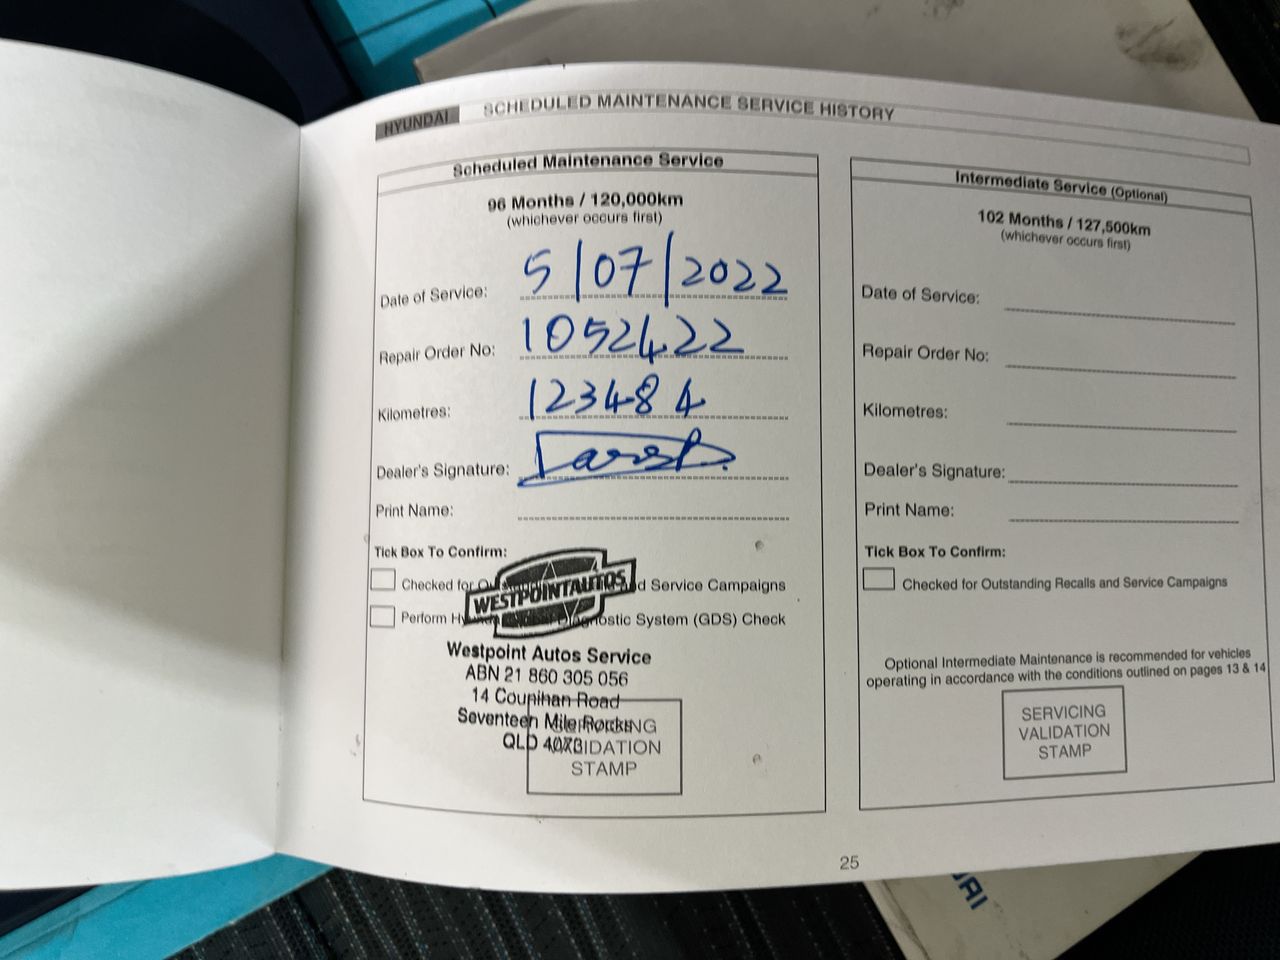 HYUNDAI SCHEDULED MAINTENANCE SERVICE HISTORY
Scheduled Maintenance Service
96 Months / 120,000km
(whichever occurs first)
Date of Service: 5/07/2022
Repair Order No: 1052422
Kilometres: 123484
Dealer's Signature:
Print Name:
Tick Box To Confirm:
Checked for d Service Campaigns
Perform nostic System (GDS) Check
WESTPOINTAUTOS
Westpoint Autos Service
ABN 21 860 305 056
14 Counihan Road
Seventeen Mile Rocks
QLD 4073
SERVICING
VALIDATION
STAMP
Intermediate Service (Optional)
102 Months / 127,500km
(whichever occurs first)
Date of Service:
Repair Order No:
Kilometres:
Dealer's Signature:
Print Name:
Tick Box To Confirm:
Checked for Outstanding Recalls and Service Campaigns
Optional Intermediate Maintenance is recommended for vehicles
operating in accordance with the conditions outlined on pages 13 & 14
SERVICING
VALIDATION
STAMP
25